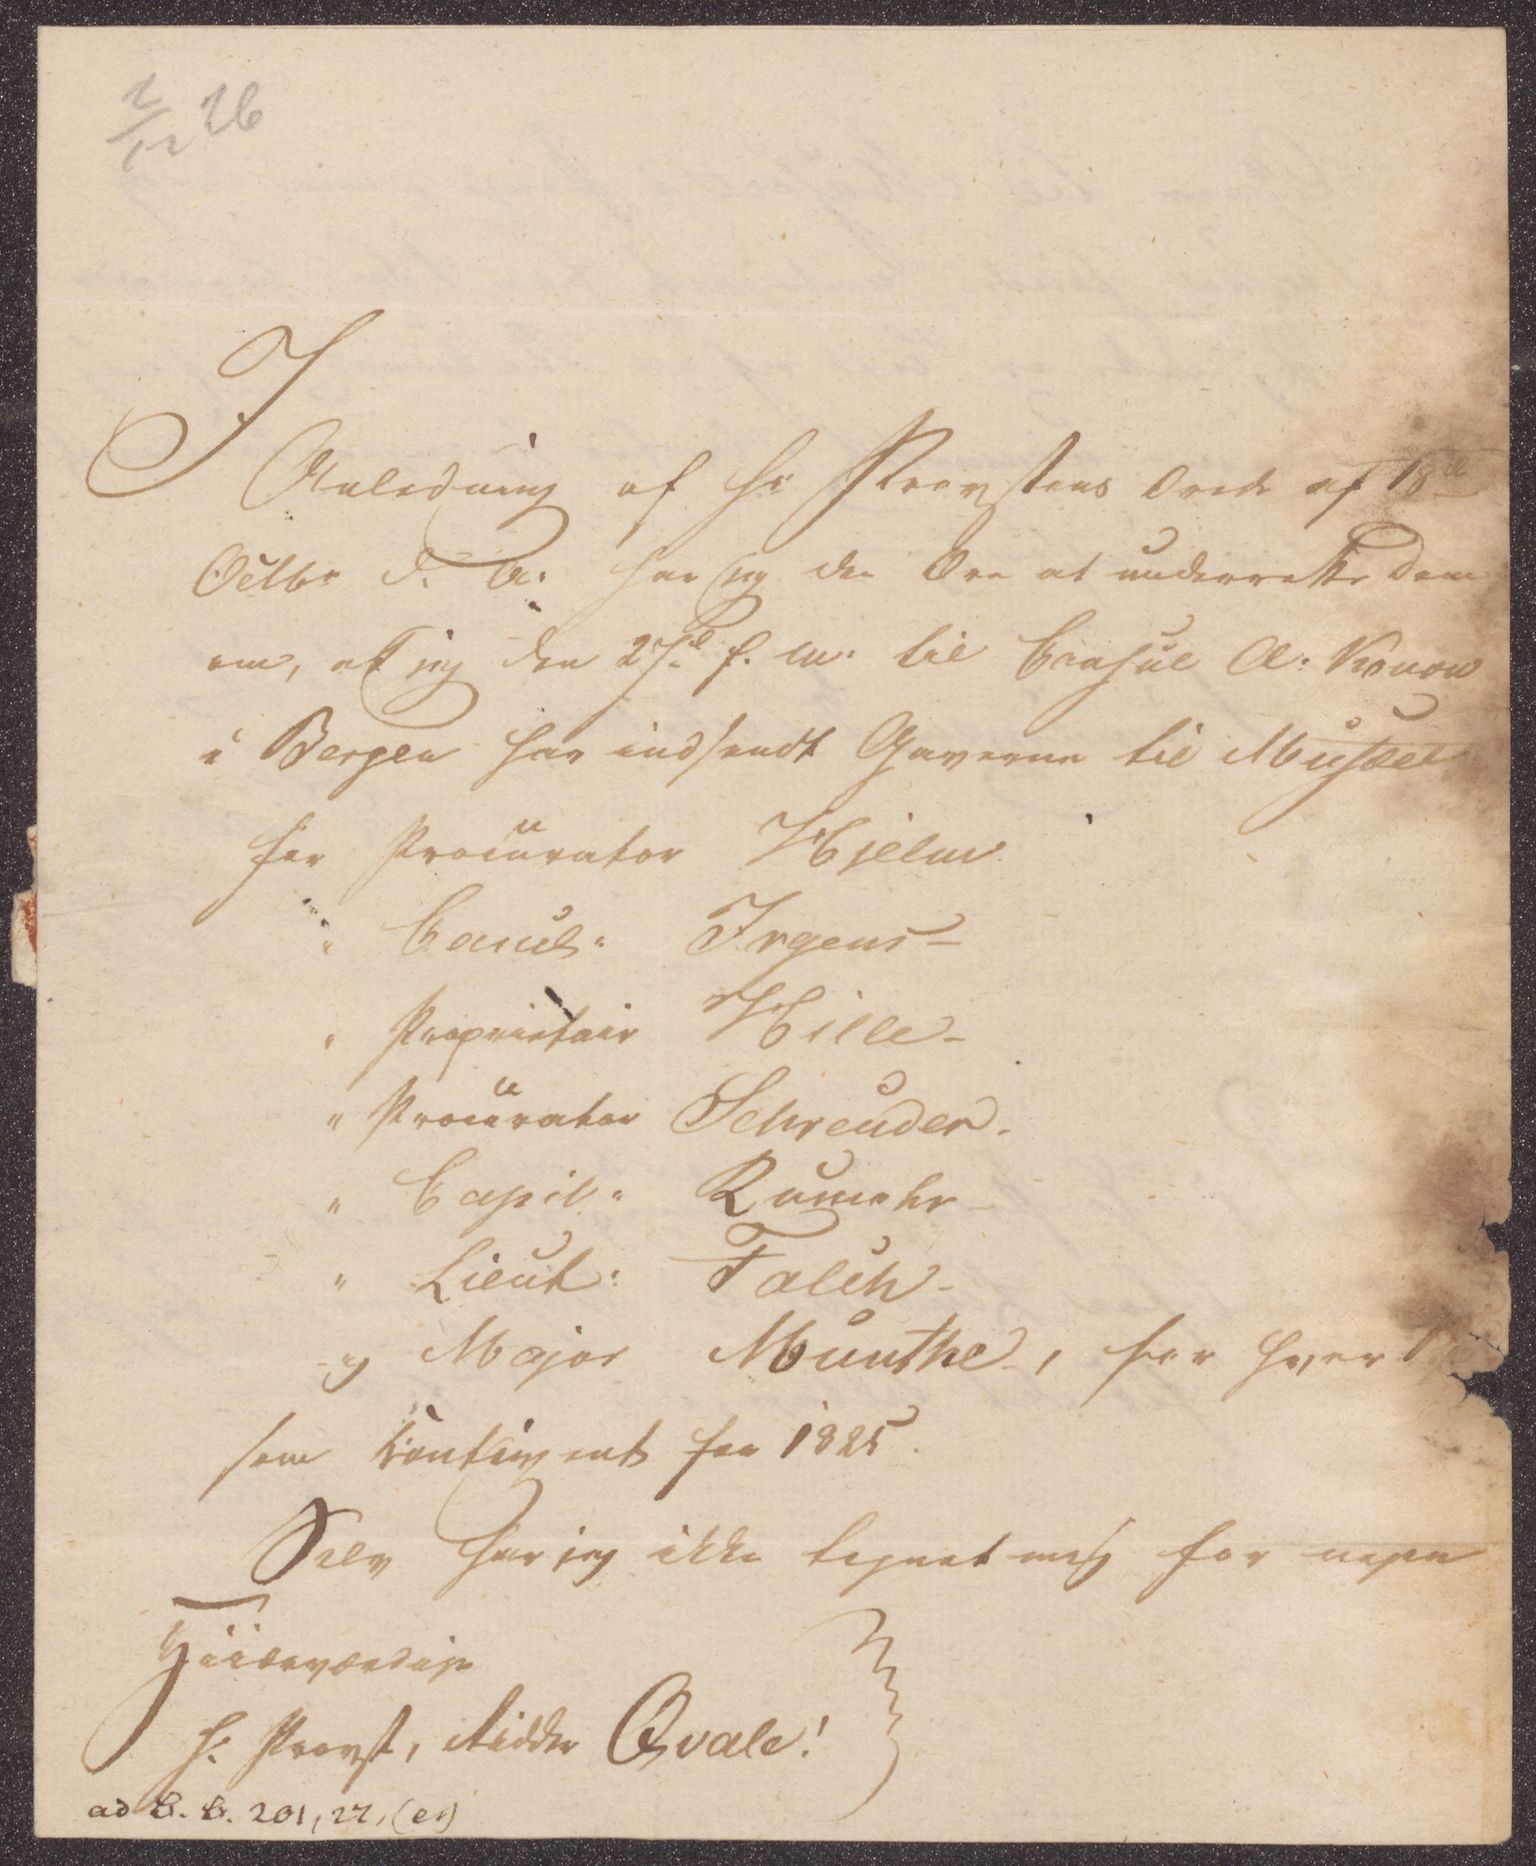 2/12 26
I
Anledning af Hr Provstens Ordre af 18de
Octbr d. A. har jeg den Ære at underrette Dem
om, at jeg den 27de f. M. til Consul A. Konow
i Bergen har indsendt Gaverne til Museet
for Procurator Hjelm
" Irgens –
" Proprietair Hille –
" Procurator Schreuder.
" Capit: Rumohr –
" Lieut: Falch –
og Major Munthe, for hver
som Contingent for 1825.
Selv har jeg ikke tegnet mig for nogen
Høiærværdige
Hr. Provst, Ridder Qvale!
ad 201, 27, (e1)